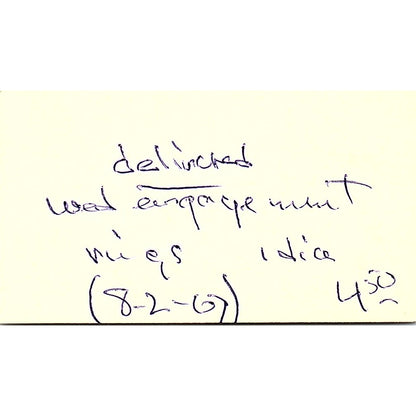 delivered
wed engagement
rings idea
(8-2-07)
4.50